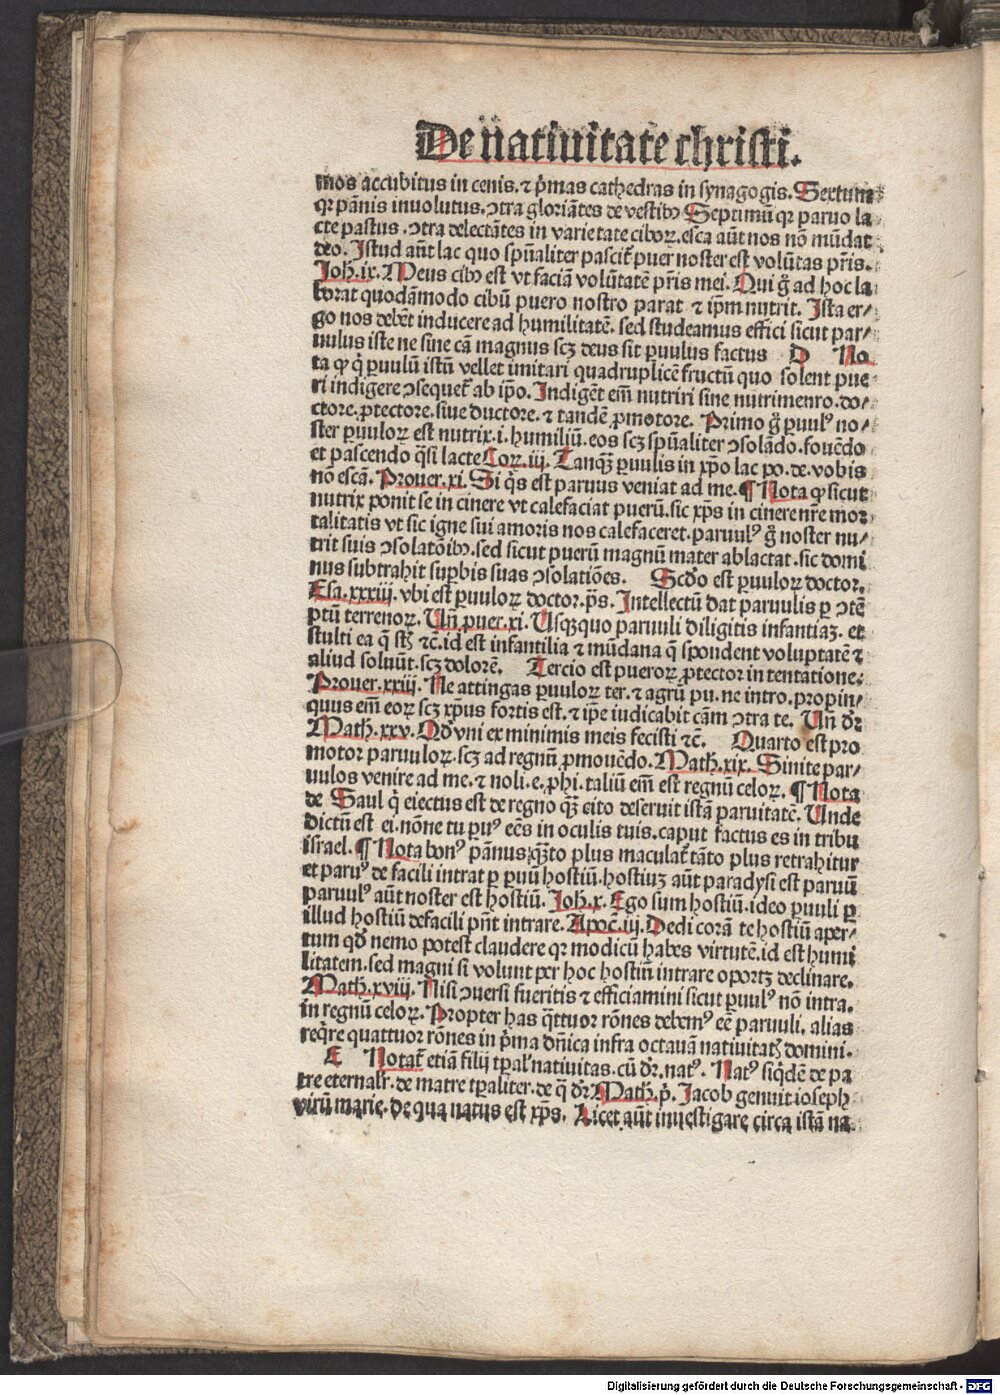 De natiuitate christi.
mos accubitus in cenis. ⁊ p̃mas cathedras in synagogis. Sextum
qr pãnis inuolutus. ↄtra gloriãtes de vestibꝰ Septimũ qr paruo la
cte pastus. ↄtra delectãtes in varietate ciboꝝ. esca aũt nos nõ mũdat
deo. Istud aũt lac quo spũaliter pascit̃ puer noster est volũtas pr̃is.
Joh̃. ix. Meus cibꝰ est vt faciã volũtatẽ pr̃is mei. Qui g̃ ad hoc la
borat quodãmodo cibũ puero nostro parat ⁊ ip̃m nutrit. Ista er⸗
go nos debẽt inducere ad humilitatẽ. sed studeamus effici sicut par⸗
uulus iste ne sine cã magnus scꝫ deus sit ꝑuulus factus D No
ta ꝙ q̃ ꝑuulũ istũ vellet imitari quadruplicẽ fructũ quo solent pue
ri indigere ↄsequet̃ ab ip̃o. Indigẽt em̃ nutriri sine nutrimenro. do⸗
ctore. ꝓtectore. siue ductore. ⁊ tandẽ ꝓmotore. Primo g̃ ꝑuulꝰ no⸗
ster ꝑuuloꝝ est nutrix. i. humiliũ. eos scꝫ spũaliter ↄsolãdo. fouẽdo
et pascendo q̃si lacte Coꝝ. iij. Tanqꝫ ꝑuulis in xp̃o lac po. de. vobis
nõ escã. Prouer. xi. Si q̃s est paruus veniat ad me. ¶ Nota ꝙ sicut
nutrix ponit se in cinere vt calefaciat puerũ. sic xp̃s in cinere nr̃e mor
talitatis vt sic igne sui amoris nos calefaceret. paruulꝰ g̃ noster nu⸗
trit suis ↄsolatõibꝰ. sed sicut puerũ magnũ mater ablactat. sic domi
nus subtrahit suꝑbis suas ↄsolatiões. Scd̃o est ꝑuuloꝝ doctor.
Esa. xxxiij. vbi est ꝑuuloꝝ doctor. p̃s. Intellectũ dat paruulis ꝑ ↄtẽ
ptũ terrenoꝝ. Uñ ꝓuer. xi. Usqꝫquo paruuli diligitis infantiaꝫ. et
stulti ea q̃ st̃ ⁊c̃. id est infantilia ⁊ mũdana q̃ spondent voluptatẽ ⁊
aliud soluũt. scꝫ dolorẽ. Tercio est pueroꝝ ꝓtector in tentatione.
Prouer. xxiij. Ne attingas ꝑuuloꝝ ter. ⁊ agrũ pu. ne intro. propin⸗
quus em̃ eoꝝ scꝫ xp̃us fortis est. ⁊ ip̃e iudicabit cãm ↄtra te. Uñ dr̃
Math̃. xxv. Qd̃ vni ex minimis meis fecisti ⁊c̃. Quarto est pro
motor paruuloꝝ. scꝫ ad regnũ ꝓmouẽdo. Math̃. xix. Sinite par⸗
uulos venire ad me. ⁊ noli. e. ꝓhi. taliũ em̃ est regnũ celoꝝ. ¶ Nota
de Saul q̃ eiectus est de regno qꝫ cito deseruit istã paruitatẽ. Unde
dictũ est ei. nõne tu ꝑuꝰ eẽs in oculis tuis. caput factus es in tribu
israel. ¶ Nota bonꝰ pãnus qꝫto plus maculat̃ tãto plus retrahitur
et paruꝰ de facili intrat ꝑ ꝑuũ hostiũ. hostiuꝫ aũt paradysi est paruũ
paruulꝰ aũt noster est hostiũ. Joh̃. x. Ego sum hostiũ. ideo ꝑuuli ꝑ
illud hostiũ defacili pñt intrare. Apoc̃. iij. Dedi corã te hostiũ aper⸗
tum qd̃ nemo potest claudere qr modicũ habes virtutẽ. id est humi
litatem. sed magni si volunt per hoc hostiũ intrare oportꝫ declinare.
Math̃. xviij. Nisi ↄuersi fueritis ⁊ efficiamini sicut ꝑuulꝰ nõ intra.
in regnũ celoꝝ. Propter has q̃ttuor rõnes debemꝰ eẽ paruuli. alias
req̃re quattuor rõnes in p̃ma dñica infra octauã natiuitat̃ domini.
E Notat̃ etiã filij tꝑal̃ natiuitas. cũ dr̃. natꝰ. Natꝰ siq̃dẽ de pa
tre eternalr̃. de matre tꝑaliter. de q̃ dr̃ Math̃. p̃. Jacob genuit ioseph
virũ marie. de qua natus est xp̃s. Licet aũt inuestigare circa istã na
Digitalisierung gefördert durch die Deutsche Forschungsgemeinschaft - DFG